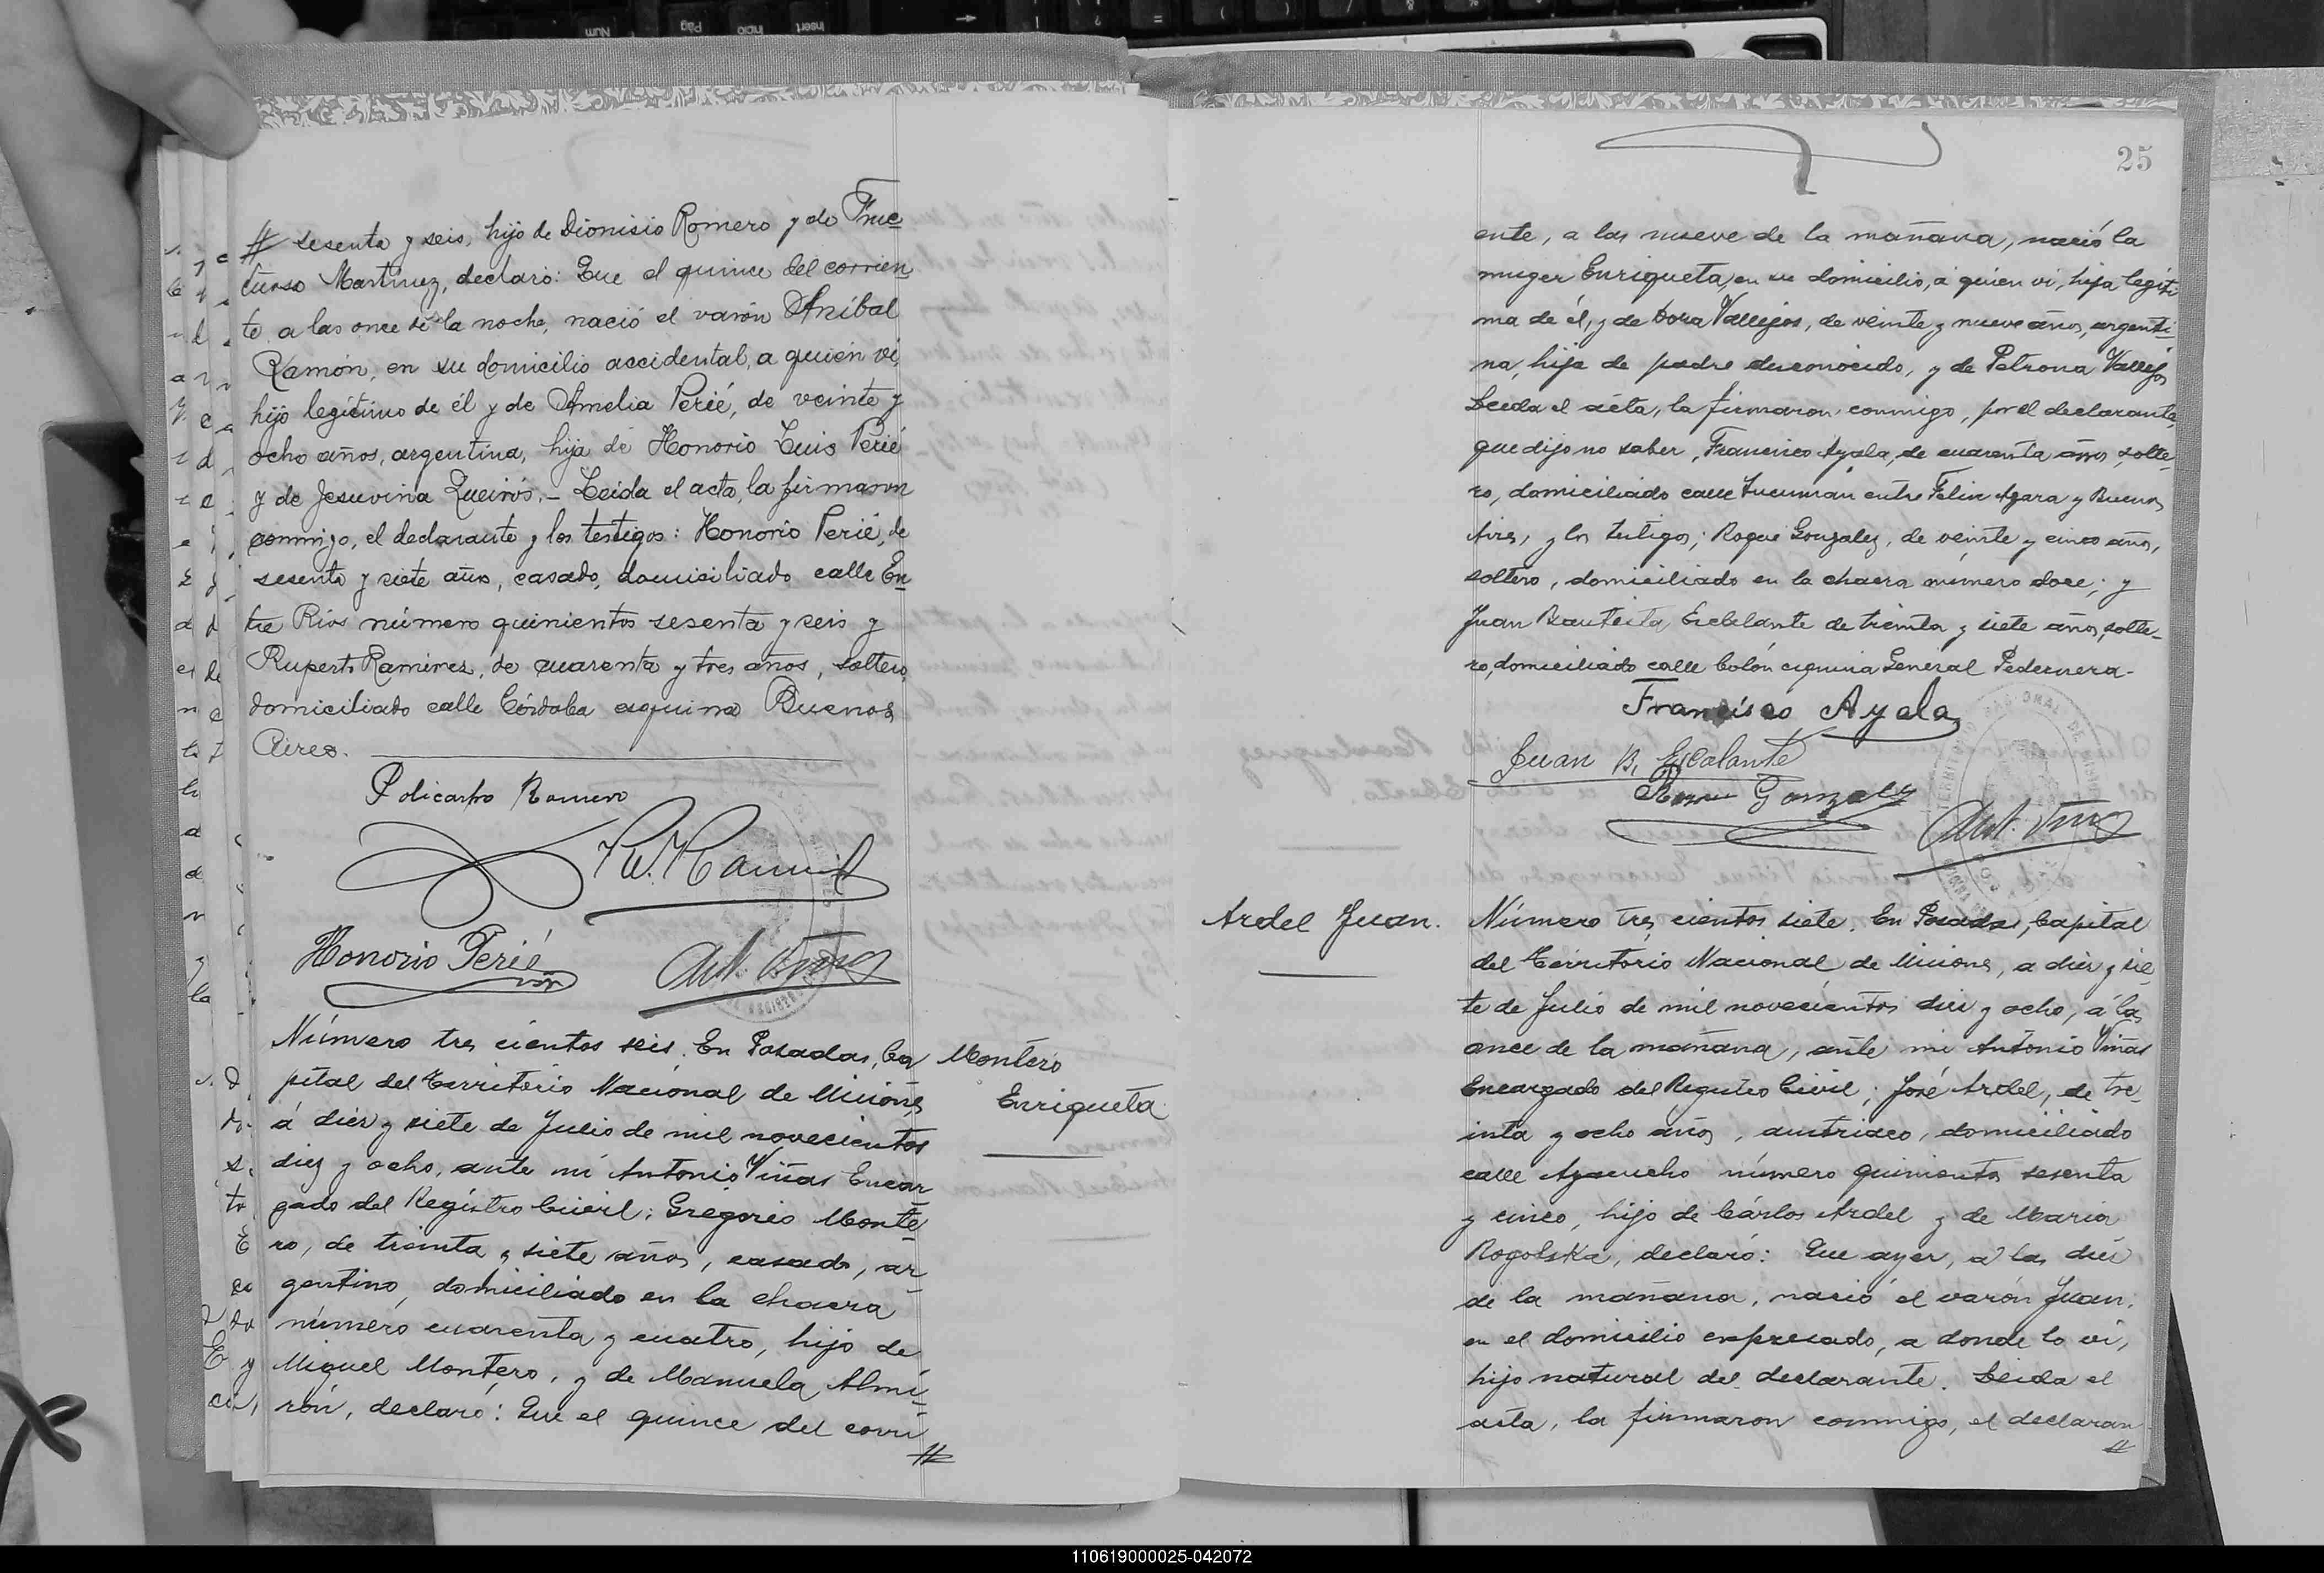 # sesenta y seis, hijo de Dionisio Romero y de Fruc-
tuosa Martínez, declaró: Que el quince del corrien-
te a las once de la noche, nació el varón Aníbal
Ramón, en su domicilio accidental, a quién vi,
hijo legítimo de él y de Amelia Perié, de veinte y
ocho años, argentina, hija de Honorio Luis Perié
y de Jesuvina Queirós.- Leída el acta, la firmaron
conmigo, el declarante y los testigos: Honorio Perié, de
sesenta y siete años, casado, domiciliado calle En-
tre Ríos número quinientos sesenta y seis y
Ruperto Ramírez, de cuarenta y tres años, soltero,
domiciliado calle Córdoba esquina Buenos
Aires.
Policarpo Romero
Honorio Perié
Número tres cientos seis. En Posadas, Ca
pital del Territorio Nacional de Misiones
á diez y siete de Julio de mil novecientos
diez y ocho, ante mí Antonio Viñas Encar-
gado del Registro Civil; Gregorio Monte-
ro, de treinta y siete años, casado, ar-
gentino, domiciliado en la chacra
número cuarenta y cuatro, hijo de
Miguel Montero, y de Manuela Almi-
rón, declaró: Que el quince del corri
#
Montero
Enriqueta
25
ente, a las nueve de la mañana, nació la
muger Enriqueta, en su domicilio, a quien vi, hija legíti
ma de él, y de Dora Vallejos, de veinte y nueve años, argenti-
na, hija de padre desconocido, y de Petrona Vallejos
Leida el acta, la firmaron conmigo, por el declarante,
que dijo no saber, Francisco Ayala, de cuarenta años, solte-
ro, domiciliado calle Tucumán entre Felix Azara y Buenos
Aires, y los testigos; Roque Gonzalez, de veinte y cinco años,
soltero, domiciliado en la chacra número doce; y
Juan Bautista Escalante de treinta y siete años, solte-
ro, domiciliado calle Colón esquina General Pedernera-
Francisco Ayala
Juan B. Escalante
Roque Gonzalez
Ardel Juan.
Número tres cientos siete. En Posadas, Capital
del Territorio Nacional de Misiones, a diez y sie-
te de Julio de mil novecientos diez y ocho, á las
once de la mañana, ante mi Antonio Viñas
Encargado del Registro Civil; José Ardel, de tre-
inta y ocho años, austriaco, domiciliado
calle Ayacucho número quinientos sesenta
y cinco, hijo de Cárlos Ardel y de Maria
Rogolska, declaró: Que ayer, a las diez
de la mañana, nació el varón Juan,
en el domicilio expresado, a donde lo vi,
hijo natural del declarante. Leida el
acta, la firmaron conmigo, el declaran-
#
110619000025-042072